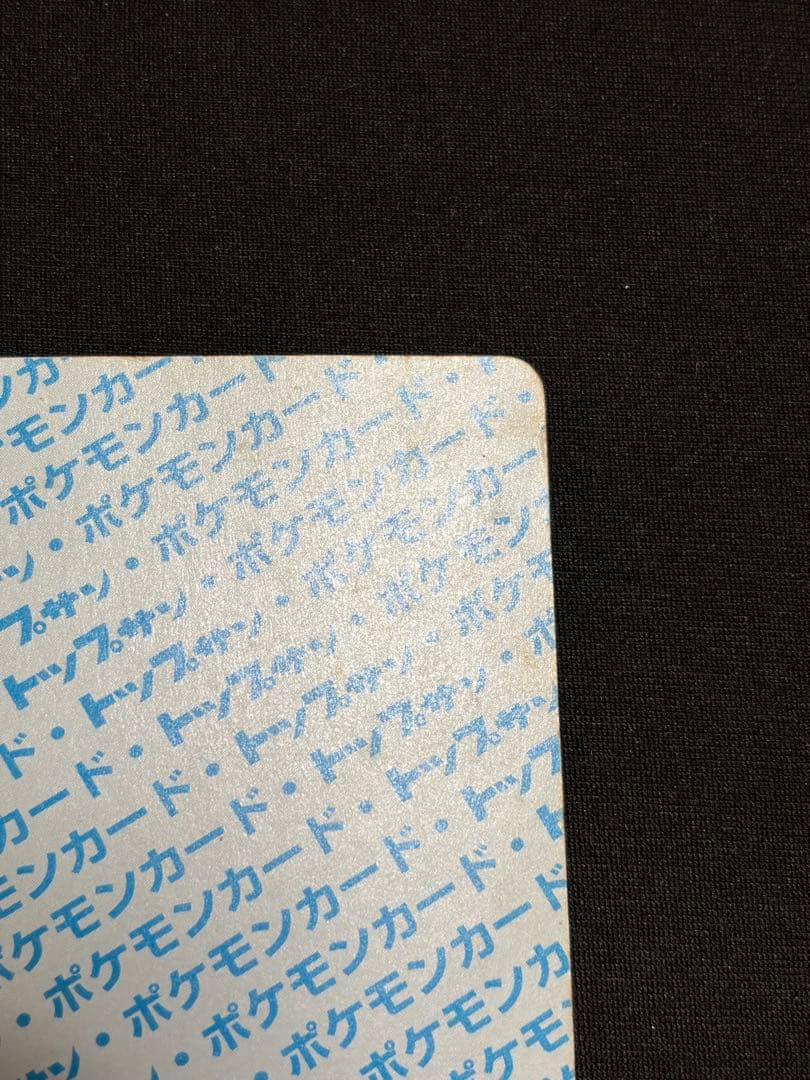 ンカード
モンカード
ポケモンカード・
・ポケモンカード・
・ポケモンカー
プサン・ポケモンカ
トップサン・ポケモン
・トップサン・ポケモ
ド・トップサン・ポ
カード・トップサン
モンカード・トップ
ポケモンカード・ト
・ポケモンカード
・ポケモンカ
ン・ポケモ